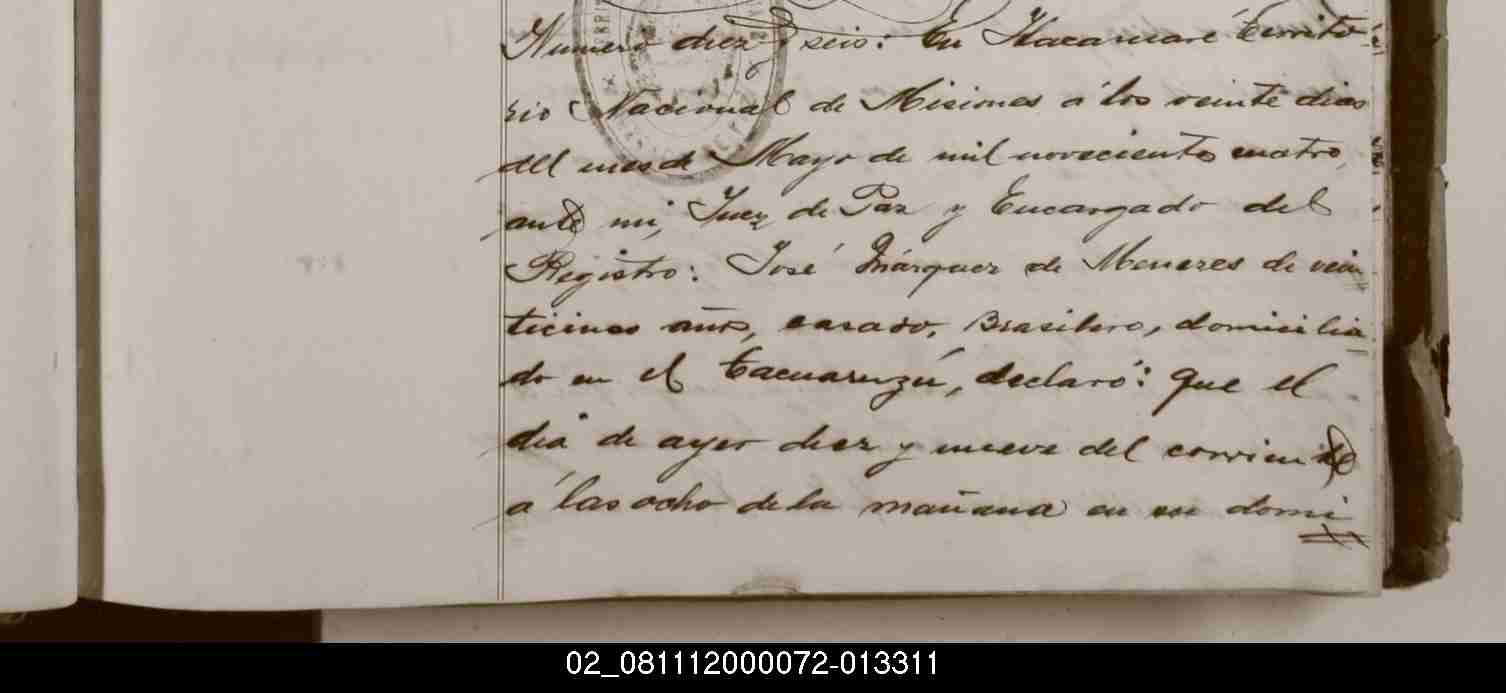 Numero diez y seis: En Itacaruaré Territo-
rio Nacional de Misiones á los veinte dias
del mes de Mayo de mil novecientos cuatro,
ante mi, Juez de Paz y Encargado del
Registro: José Márquez de Menezes de vein-
ticinco años, casado, Brasilero, domicilia-
do en el Tacuaruzú, declaró: Que el
dia de ayer diez y nueve del corriente
á las ocho de la mañana en su domi
02_081112000072-013311